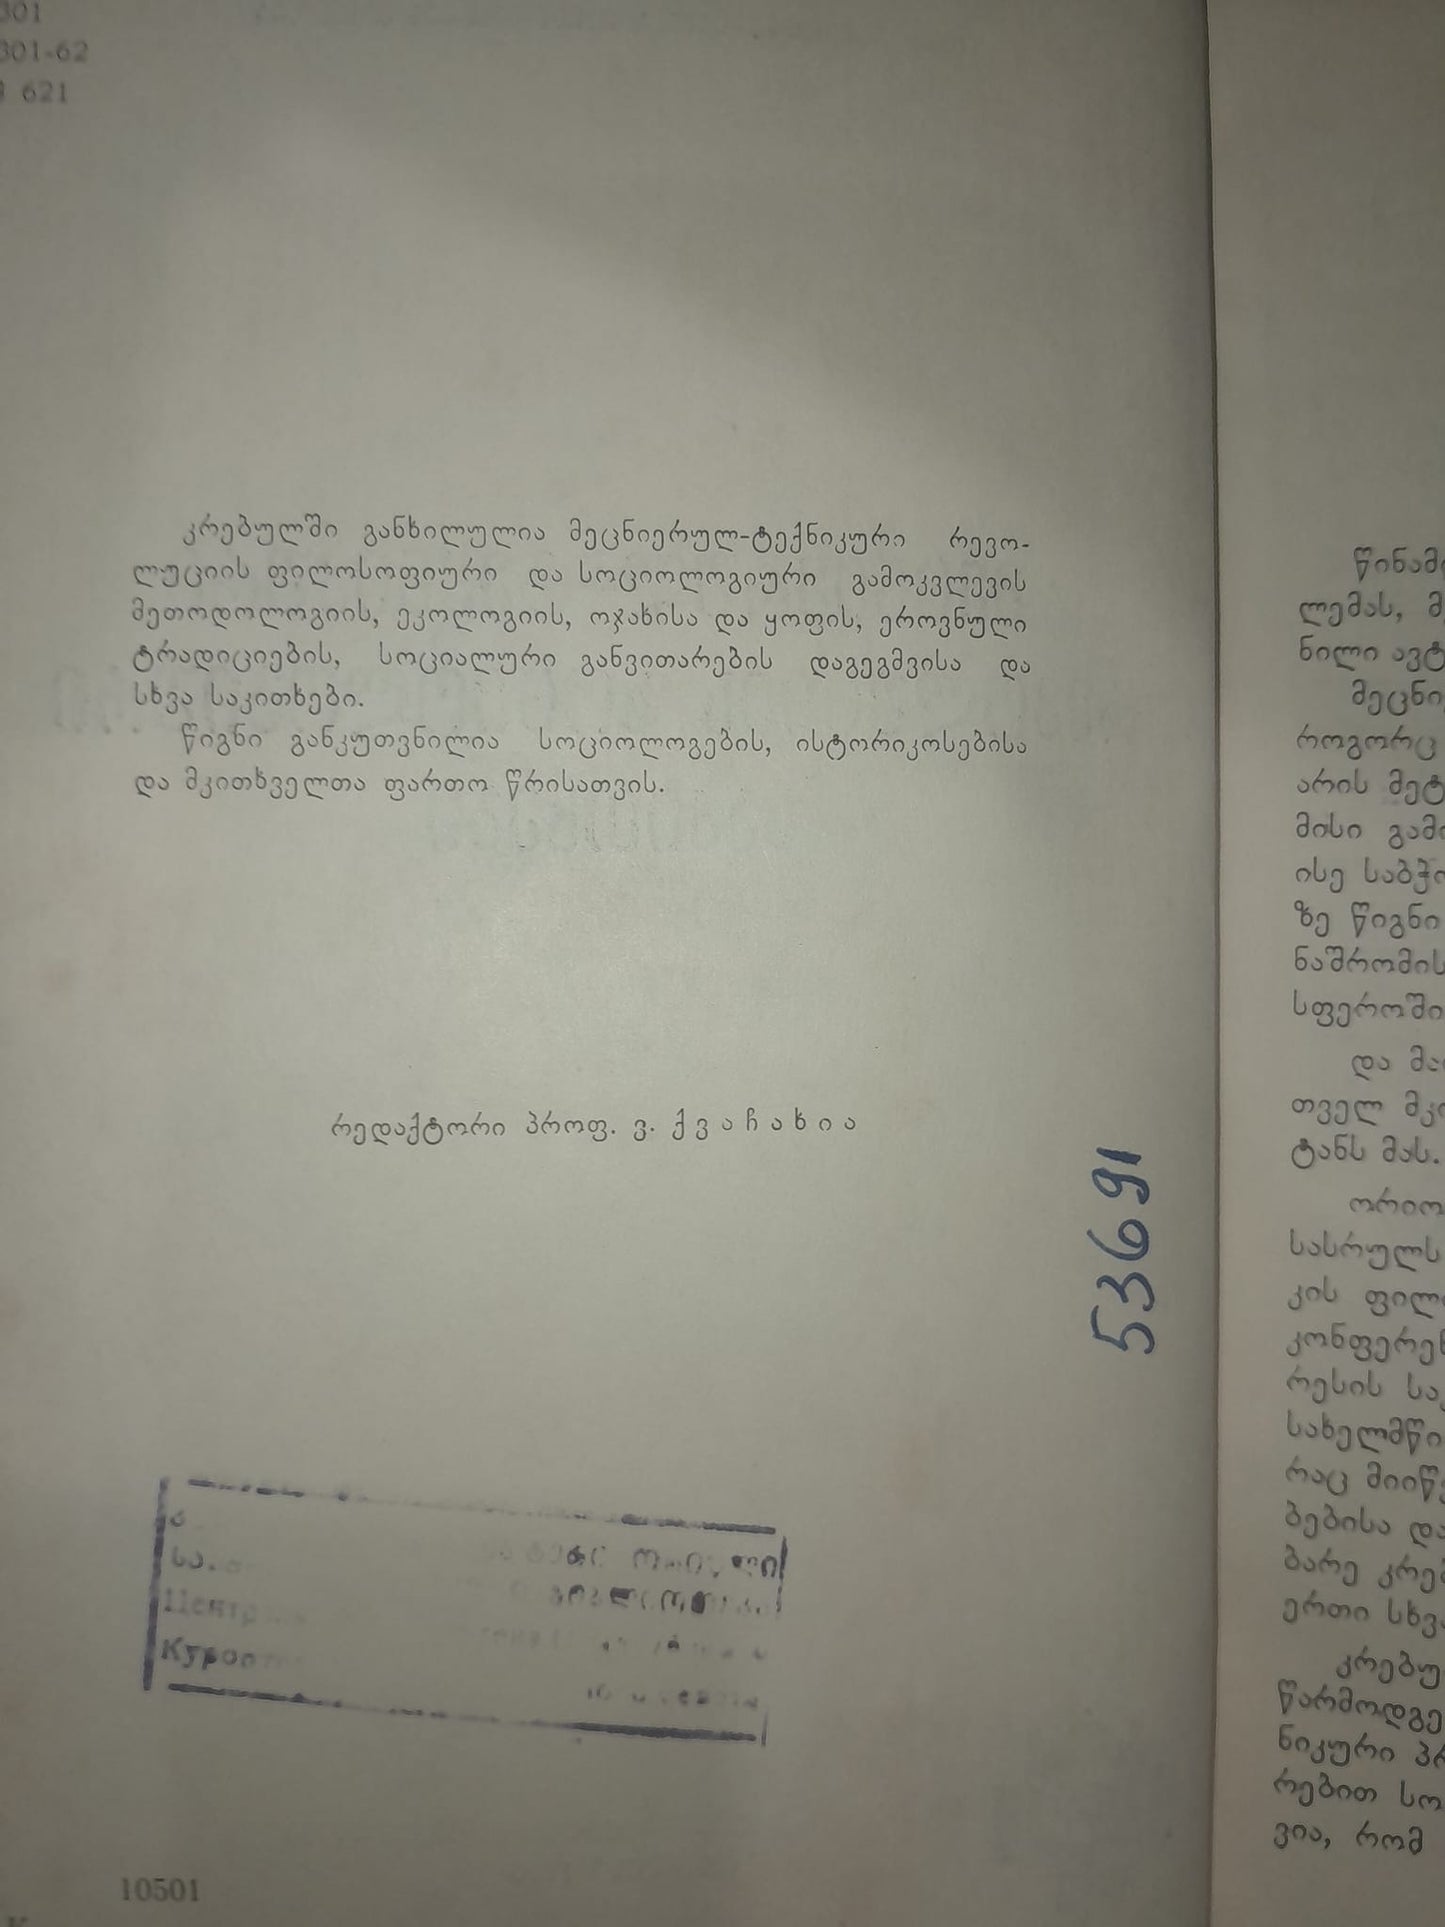 301
301-62
621
კრებულში განხილულია მეცნიერულ-ტექნიკური რევო-
ლუციის ფილოსოფიური და სოციოლოგიური გამოკვლევის
მეთოდოლოგიის, ეკოლოგიის, ოჯახისა და ყოფის, ეროვნული
ტრადიციების, სოციალური განვითარების დაგეგმვისა და
სხვა საკითხები.
წიგნი განკუთვნილია სოციოლოგების, ისტორიკოსებისა
და მკითხველთა ფართო წრისათვის.
რედაქტორი პროფ. ვ. ქ ვ ა ჩ ა ხ ი ა
53691
10501
წინამ
ლემას, მ
ნილი ავტ
მეცნი
როგორც
არის მეტ
მისი გამ
ისე საბჭ
ზე წიგნი
ნაშრომის
სფეროში
და მა
თველ მკი
ტანს მას.
ორიო
სასრულს
კის ფილ
კონფერენ
რესის სა
სახელმწი
რაც მიიწ
ბებისა და
ბარე კრებ
ერთი სხვ
კრებუ
წარმოდგე
ნიკური პრ
რებით სო
ვია, რომ